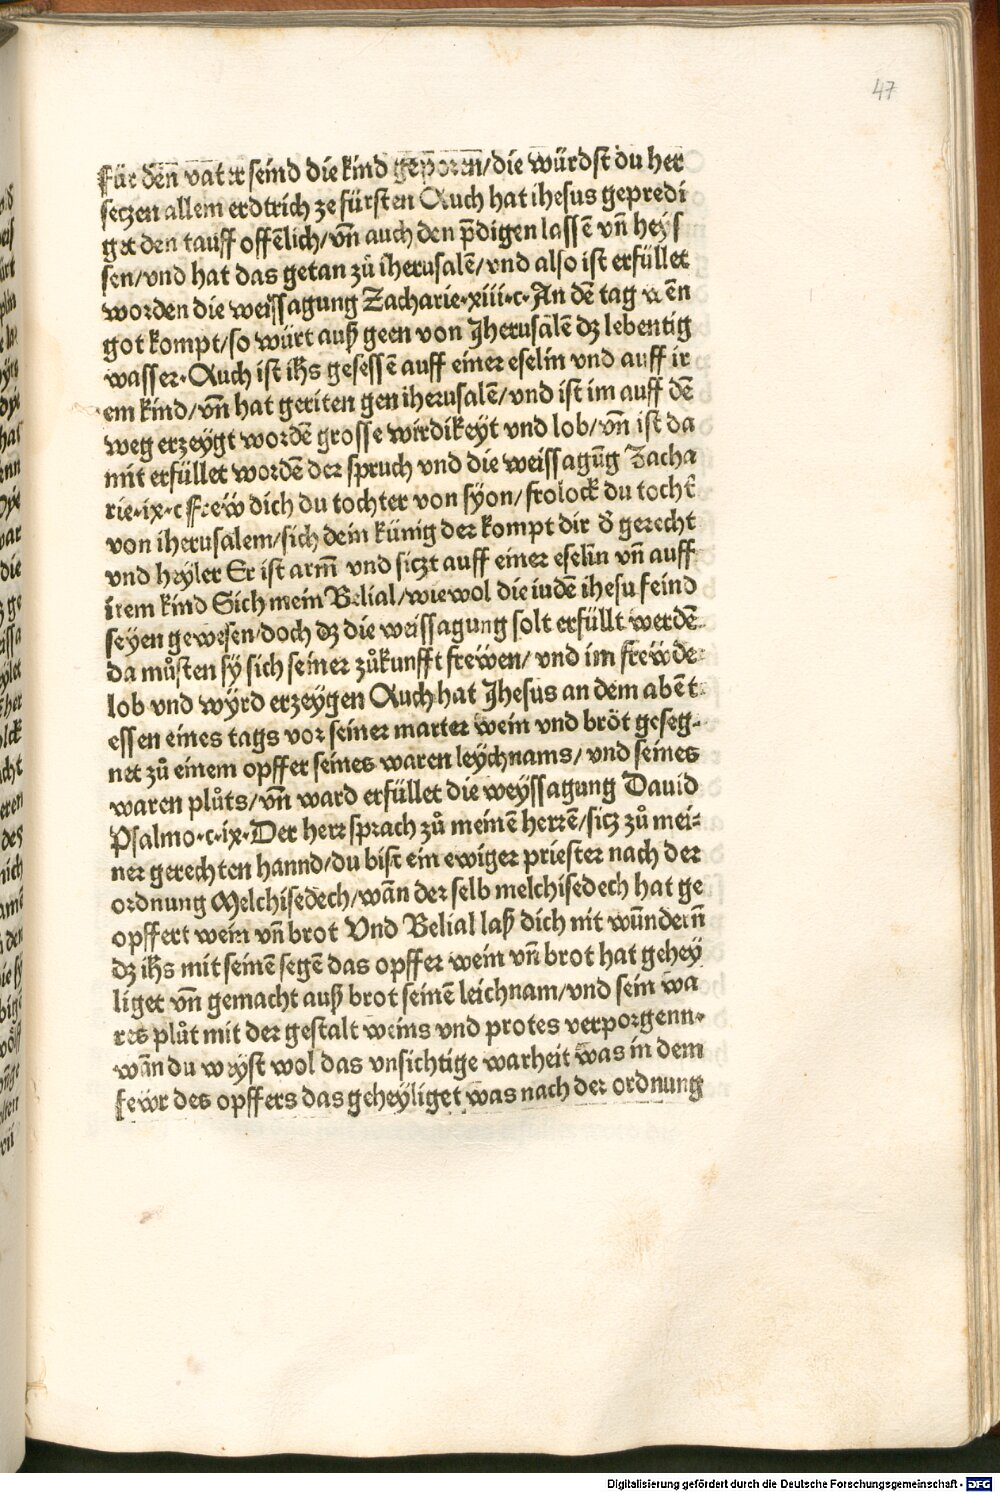 47
Für den̄ vater seind die kind geporen̄/die würdst du her
seczen allem erdtrich ze fürsten Auch hat ihesus gepredi
get den tauff offēlich/vn̄ auch den p̄digen lassē vn̄ heys
sen/vnd hat das getan zů iherusalē/vnd also ist erfüllet
worden die weissagung Zacharie·xiii·c·An dē tag wēn
got kompt/so würt auß geen von Jherusalē dz lebentig
wasser·Auch ist ihs gesessē auff einer eselin vnd auff ir
em kind/vn̄ hat geriten gen iherusalē/vnd ist im auff dē
weg erzeygt wordē grosse wirdikeyt vnd lob/vn̄ ist da
mit erfüllet wordē der spruch vnd die weissagūg Zacha
rie·ix·c Frew dich du tochter von syon/frolock du tocht̄
von iherusalem/sich dein künig der kompt dir d̄ gerecht
vnd heyler Er ist arm̄ vnd siczt auff einer eselin vn̄ auff
irem kind Sich mein Belial/wiewol die iudē ihesu feind
seyen gewesen/doch dz die weissagung solt erfüllt werdē
da můsten sy sich seiner zůkunfft frewen/vnd im frewde
lob vnd wyrd erzeygen Auch hat Jhesus an dem abēt
essen eines tags vor seiner marter wein vnd bröt geseg-
net zů einem opffer seines waren leychnams/vnd seines
waren plůts/vn̄ ward erfüllet die weyssagung Dauid
Psalmo·c·ix·Der herr sprach zů meinē herrē/sicz zů mei-
ner gerechten hannd/du bist ein ewiger priester nach der
ordnung Melchisedech/wān der selb melchisedech hat ge
opffert wein vn̄ brot Vnd Belial laß dich nit wūndern̄
dz ihs mit seinē segē das opffer wein vn̄ brot hat gehey
liget vn̄ gemacht auß brot seinē leichnam/vnd sein wa
res plůt mit der gestalt weins vnd protes verporgenn·
wān du weyst wol das vnsichtige warheit was in dem
fewr des opffers das geheyliget was nach der ordnung
Digitalisierung gefördert durch die Deutsche Forschungsgemeinschaft - DFG